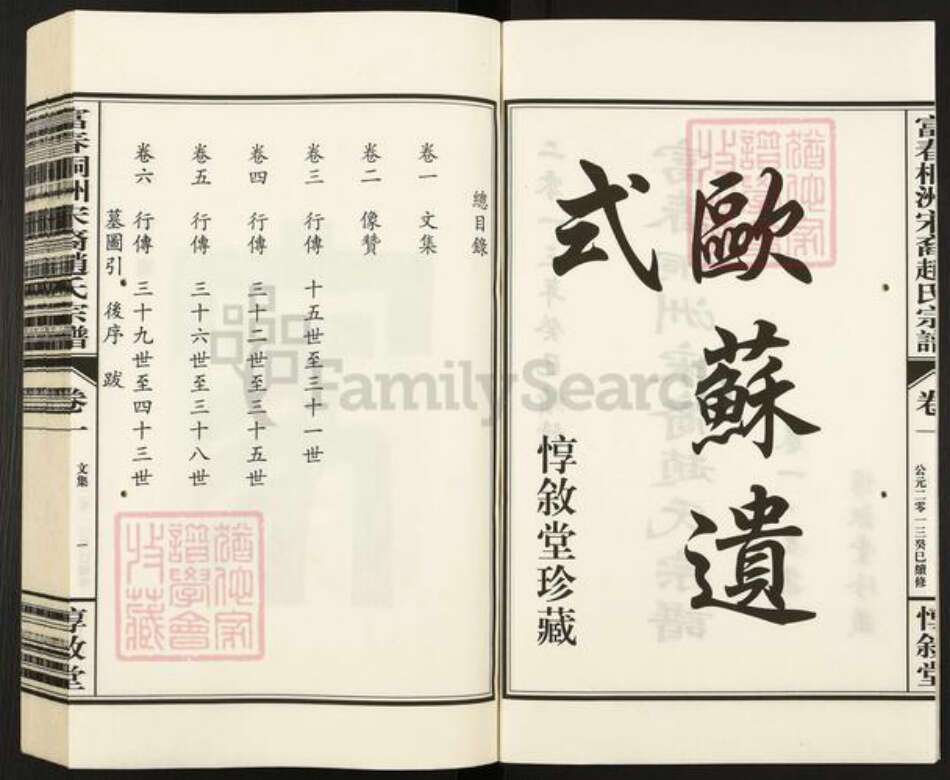 富春桐洲宋裔趙氏宗譜
卷一
公元二零一三癸巳續修
惇敘堂
歐蘇遺
式
惇敘堂珍藏
總目錄
卷一 文集
卷二 像贊
卷三 行傳 十五世至三十一世
卷四 行傳 三十二世至三十五世
卷五 行傳 三十六世至三十八世
卷六 行傳 三十九世至四十三世
墓圖引 後序 跋
富春桐洲宋裔趙氏宗譜
卷一
文集
一
惇敘堂
猶他家
譜學會
收藏
猶他家
譜學會
收藏
FamilySearch